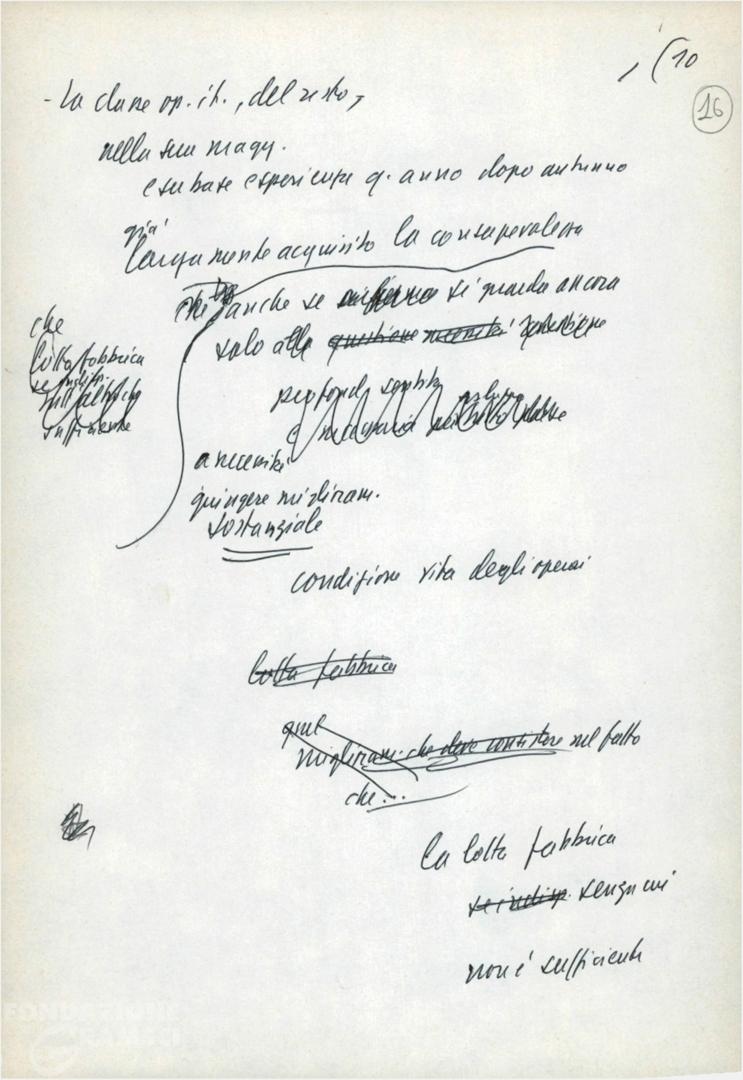 / (10
16
- La classe op. it., del resto,
nella sua magg.
e su base esperienza q. anno dopo autunno
già
largamente acquisito la consapevolezza
che anche se si guarda ancora
solo alla questione necessità
profonda sentita
e necessaria
che
lotta fabbrica
se
sufficiente
a necessità
giungere miglioram.
sostanziale
condizione vita degli operai
lotta fabbrica
quel
miglioram. che deve consistere nel fatto
che...
la lotta fabbrica
se indisp. senza cui
non è sufficiente
FONDAZIONE
GRAMSCI